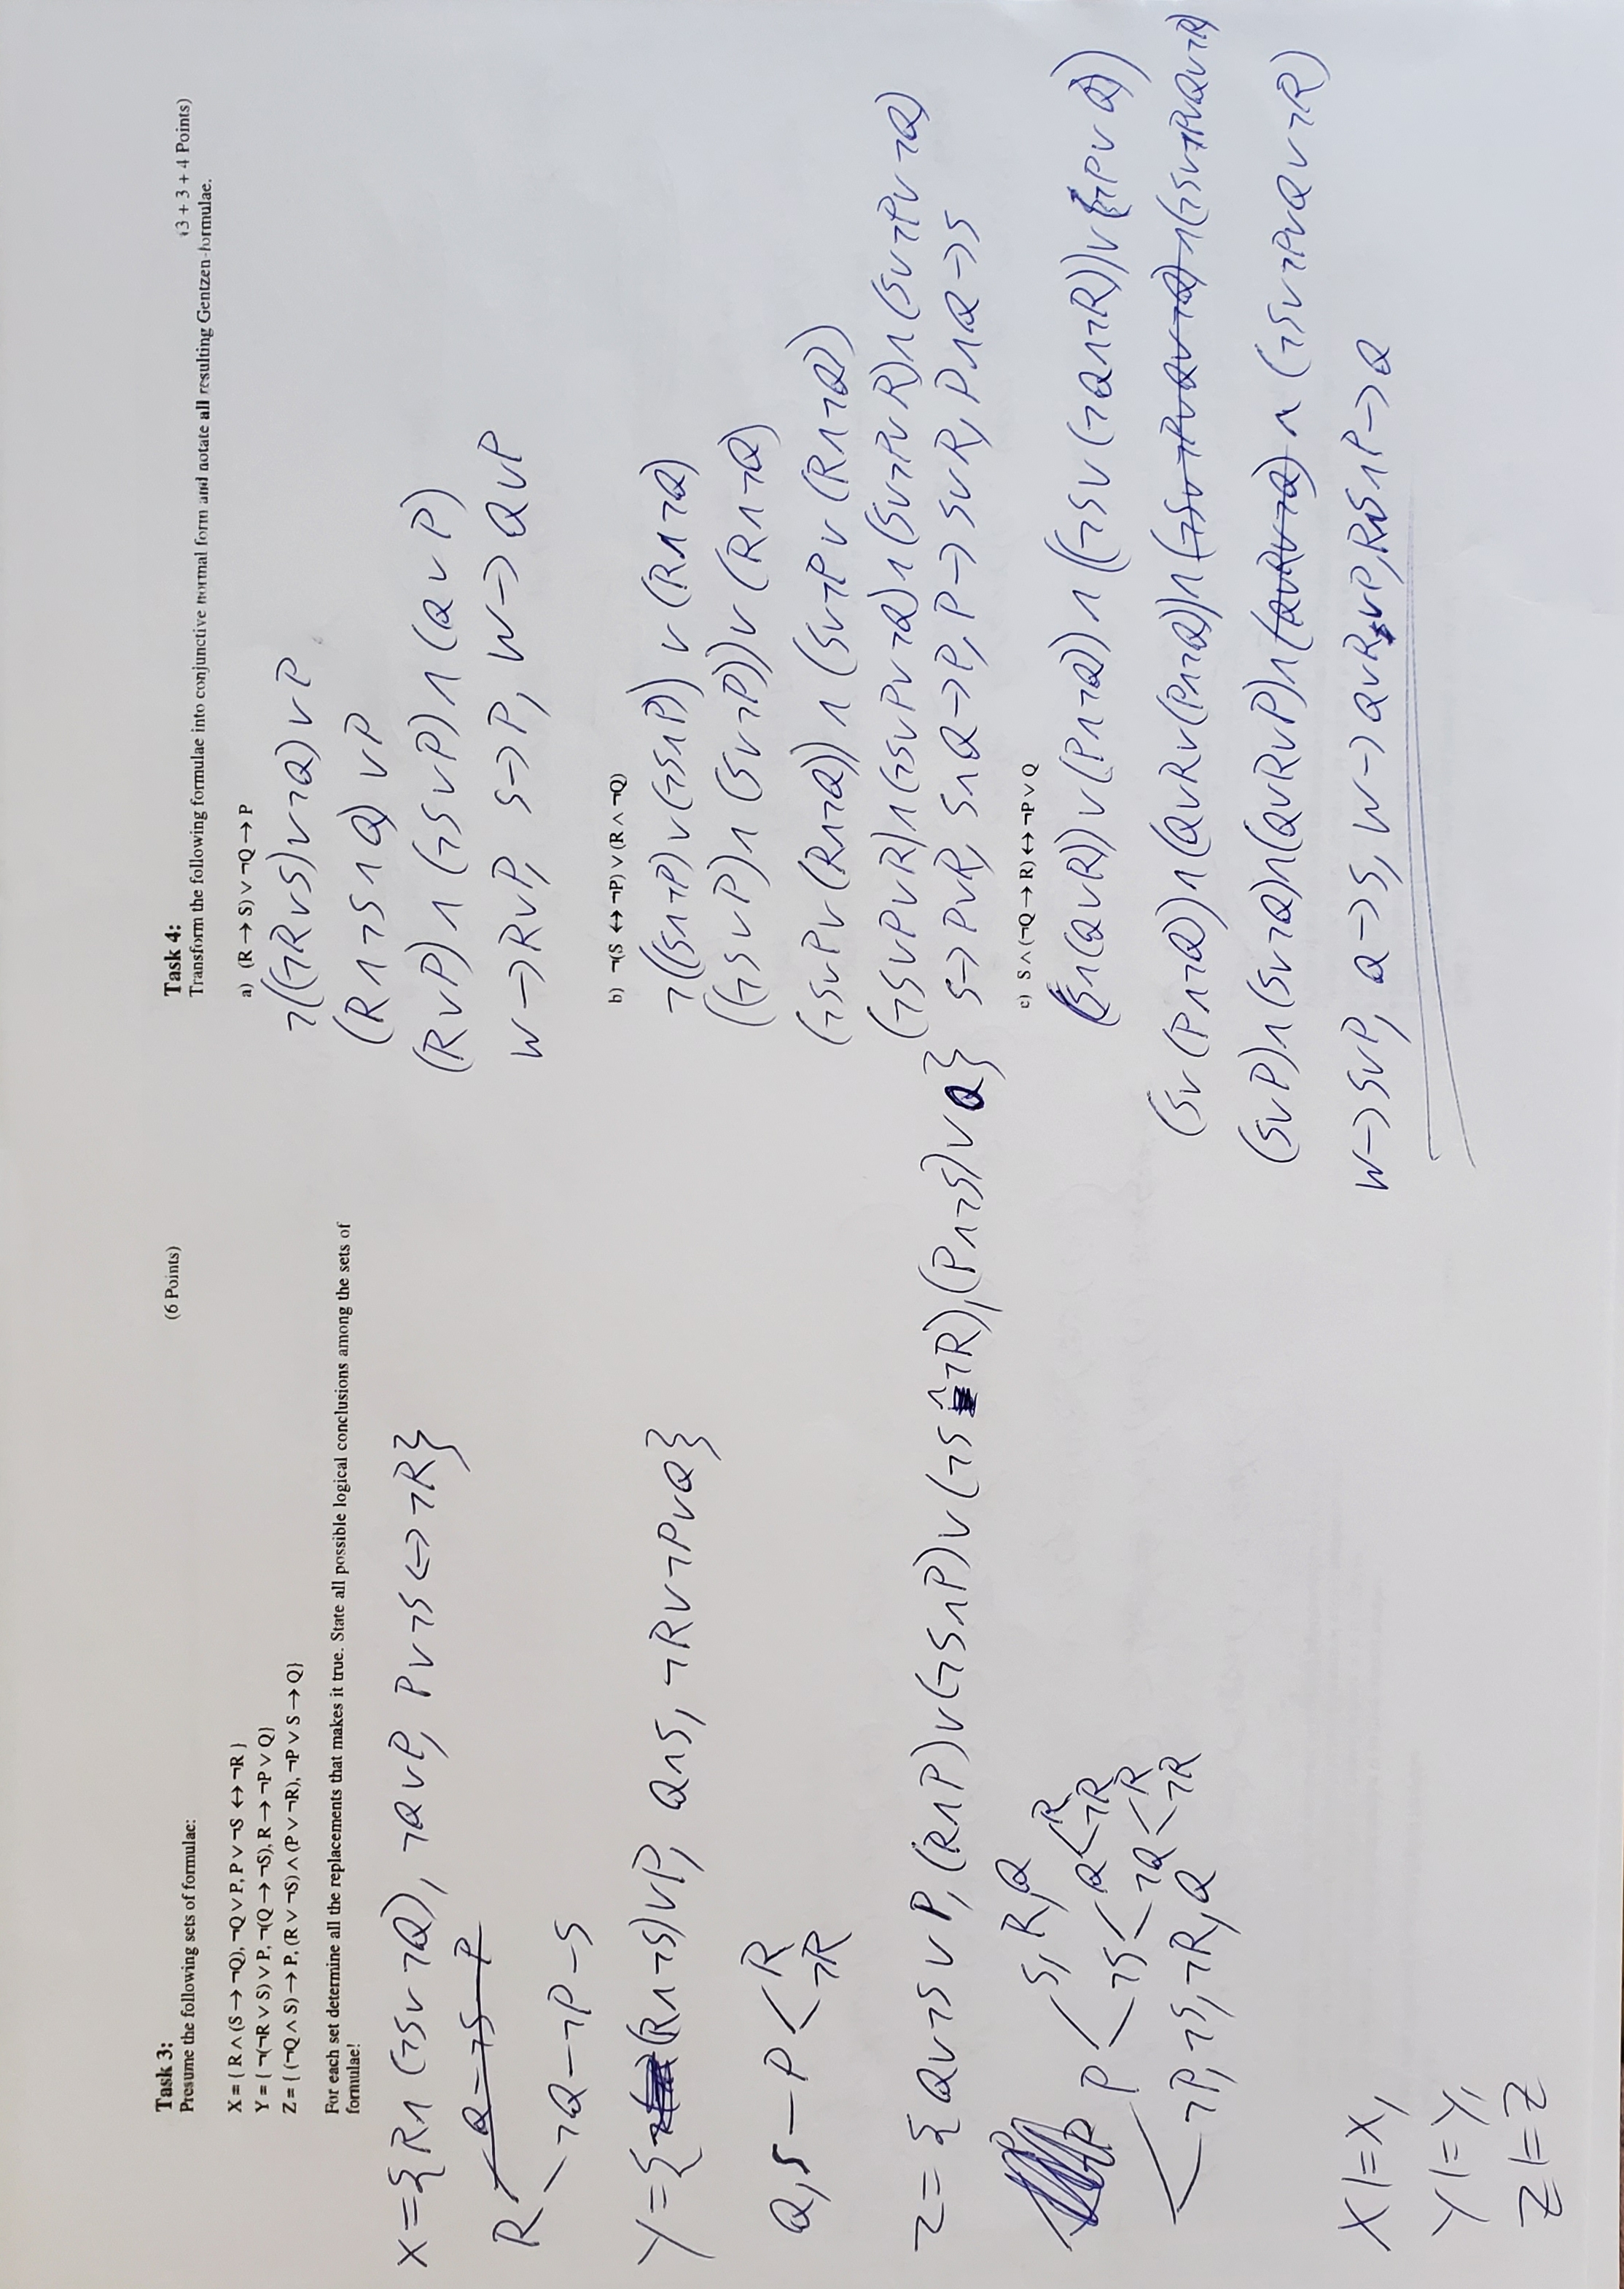 Task 3: (6 Points)
Presume the following sets of formulae:
X = { R ∧ (S → ¬Q), ¬Q ∨ P, P ∨ ¬S ↔ ¬R }
Y = { ¬(¬R ∨ S) ∨ P, ¬(Q → ¬S), R → ¬P ∨ Q}
Z = { (¬Q ∧ S) → P, (R ∨ ¬S) ∧ (P ∨ ¬R), ¬P ∨ S → Q}
For each set determine all the replacements that makes it true. State all possible logical conclusions among the sets of
formulae!
X={R∧(¬S∨¬Q), ¬Q∨P, P∨¬S<->¬R}
Q-¬S-P
R
¬Q-¬P-S
Y={(R∧¬S)∨P, Q∧S, ¬R∨¬P∨Q}
Q,S-P<R
¬R
Z={Q∨¬S∨P,(R∧P)∨(¬S∧P)∨(¬S∧¬R),(P∧¬S)∨Q}
P<S,R,Q
¬S<Q<R
¬R
¬Q<R
¬R
¬P,¬S,¬R,Q
X|=X,
Y|=Y,
Z|=Z
Task 4: (3 + 3 + 4 Points)
Transform the following formulae into conjunctive normal form and notate all resulting Gentzen-formulae.
a) (R → S) ∨ ¬Q → P
¬((¬R∨S)∨¬Q)∨P
(R∧¬S∧Q)∨P
(R∨P)∧(¬S∨P)∧(Q∨P)
W->R∨P, S->P, W->Q∨P
b) ¬(S ↔ ¬P) ∨ (R ∧ ¬Q)
¬((S∧¬P)∨(¬S∧P))∨(R∧¬Q)
((¬S∨P)∧(S∨¬P))∨(R∧¬Q)
(¬S∨P∨(R∧¬Q))∧(S∨¬P∨(R∧¬Q))
(¬S∨P∨R)∧(¬S∨P∨¬Q)∧(S∨¬P∨R)∧(S∨¬P∨¬Q)
S->P∨R, S∧Q->P, P->S∨R, P∧Q->S
c) S ∧ (¬Q → R) ↔ ¬P ∨ Q
(S∧(Q∨R))∨(P∧¬Q))∧((¬S∨(¬Q∧¬R))∨(¬P∨Q))
(S∨(P∧¬Q))∧(Q∨R∨(P∧¬Q))∧(¬S∨¬P∨Q∨¬Q)∧(¬S∨¬P∨Q∨¬R)
(S∨P)∧(S∨¬Q)∧(Q∨R∨P)∧(Q∨R∨¬Q)∧(¬S∨¬P∨Q∨¬R)
W->S∨P, Q->S, W->Q∨R∨P, R∧S∧P->Q